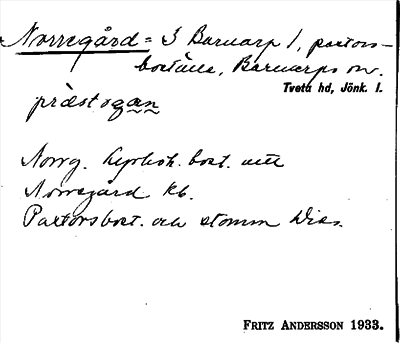 Norregård = I Barnarp 1, pastors-
boställe, Barnarps sn.
Tveta hd, Jönk. l.
prästogan
Norrg. kyrkoh. bost. utt
Norregård kb.
Pastorsbost. och stomm Dias.
FRITZ ANDERSSON 1933.